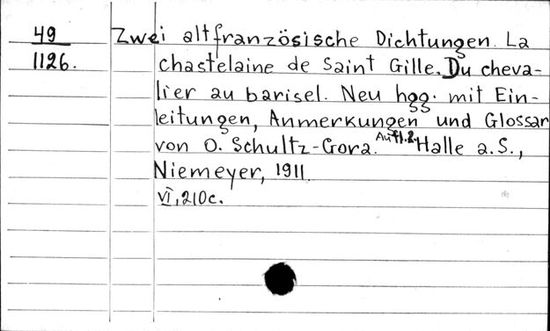 49 Zwei altfranzösische Dichtungen. La
1126. chastelaine de Saint Gille. Du cheva-
lier au barisel. Neu hgg. mit Ein-
leitungen, Anmerkungen und Glossar
von O. Schultz-Gora. Aufl. 2. Halle a. S.,
Niemeyer, 1911.
VI, 210c.